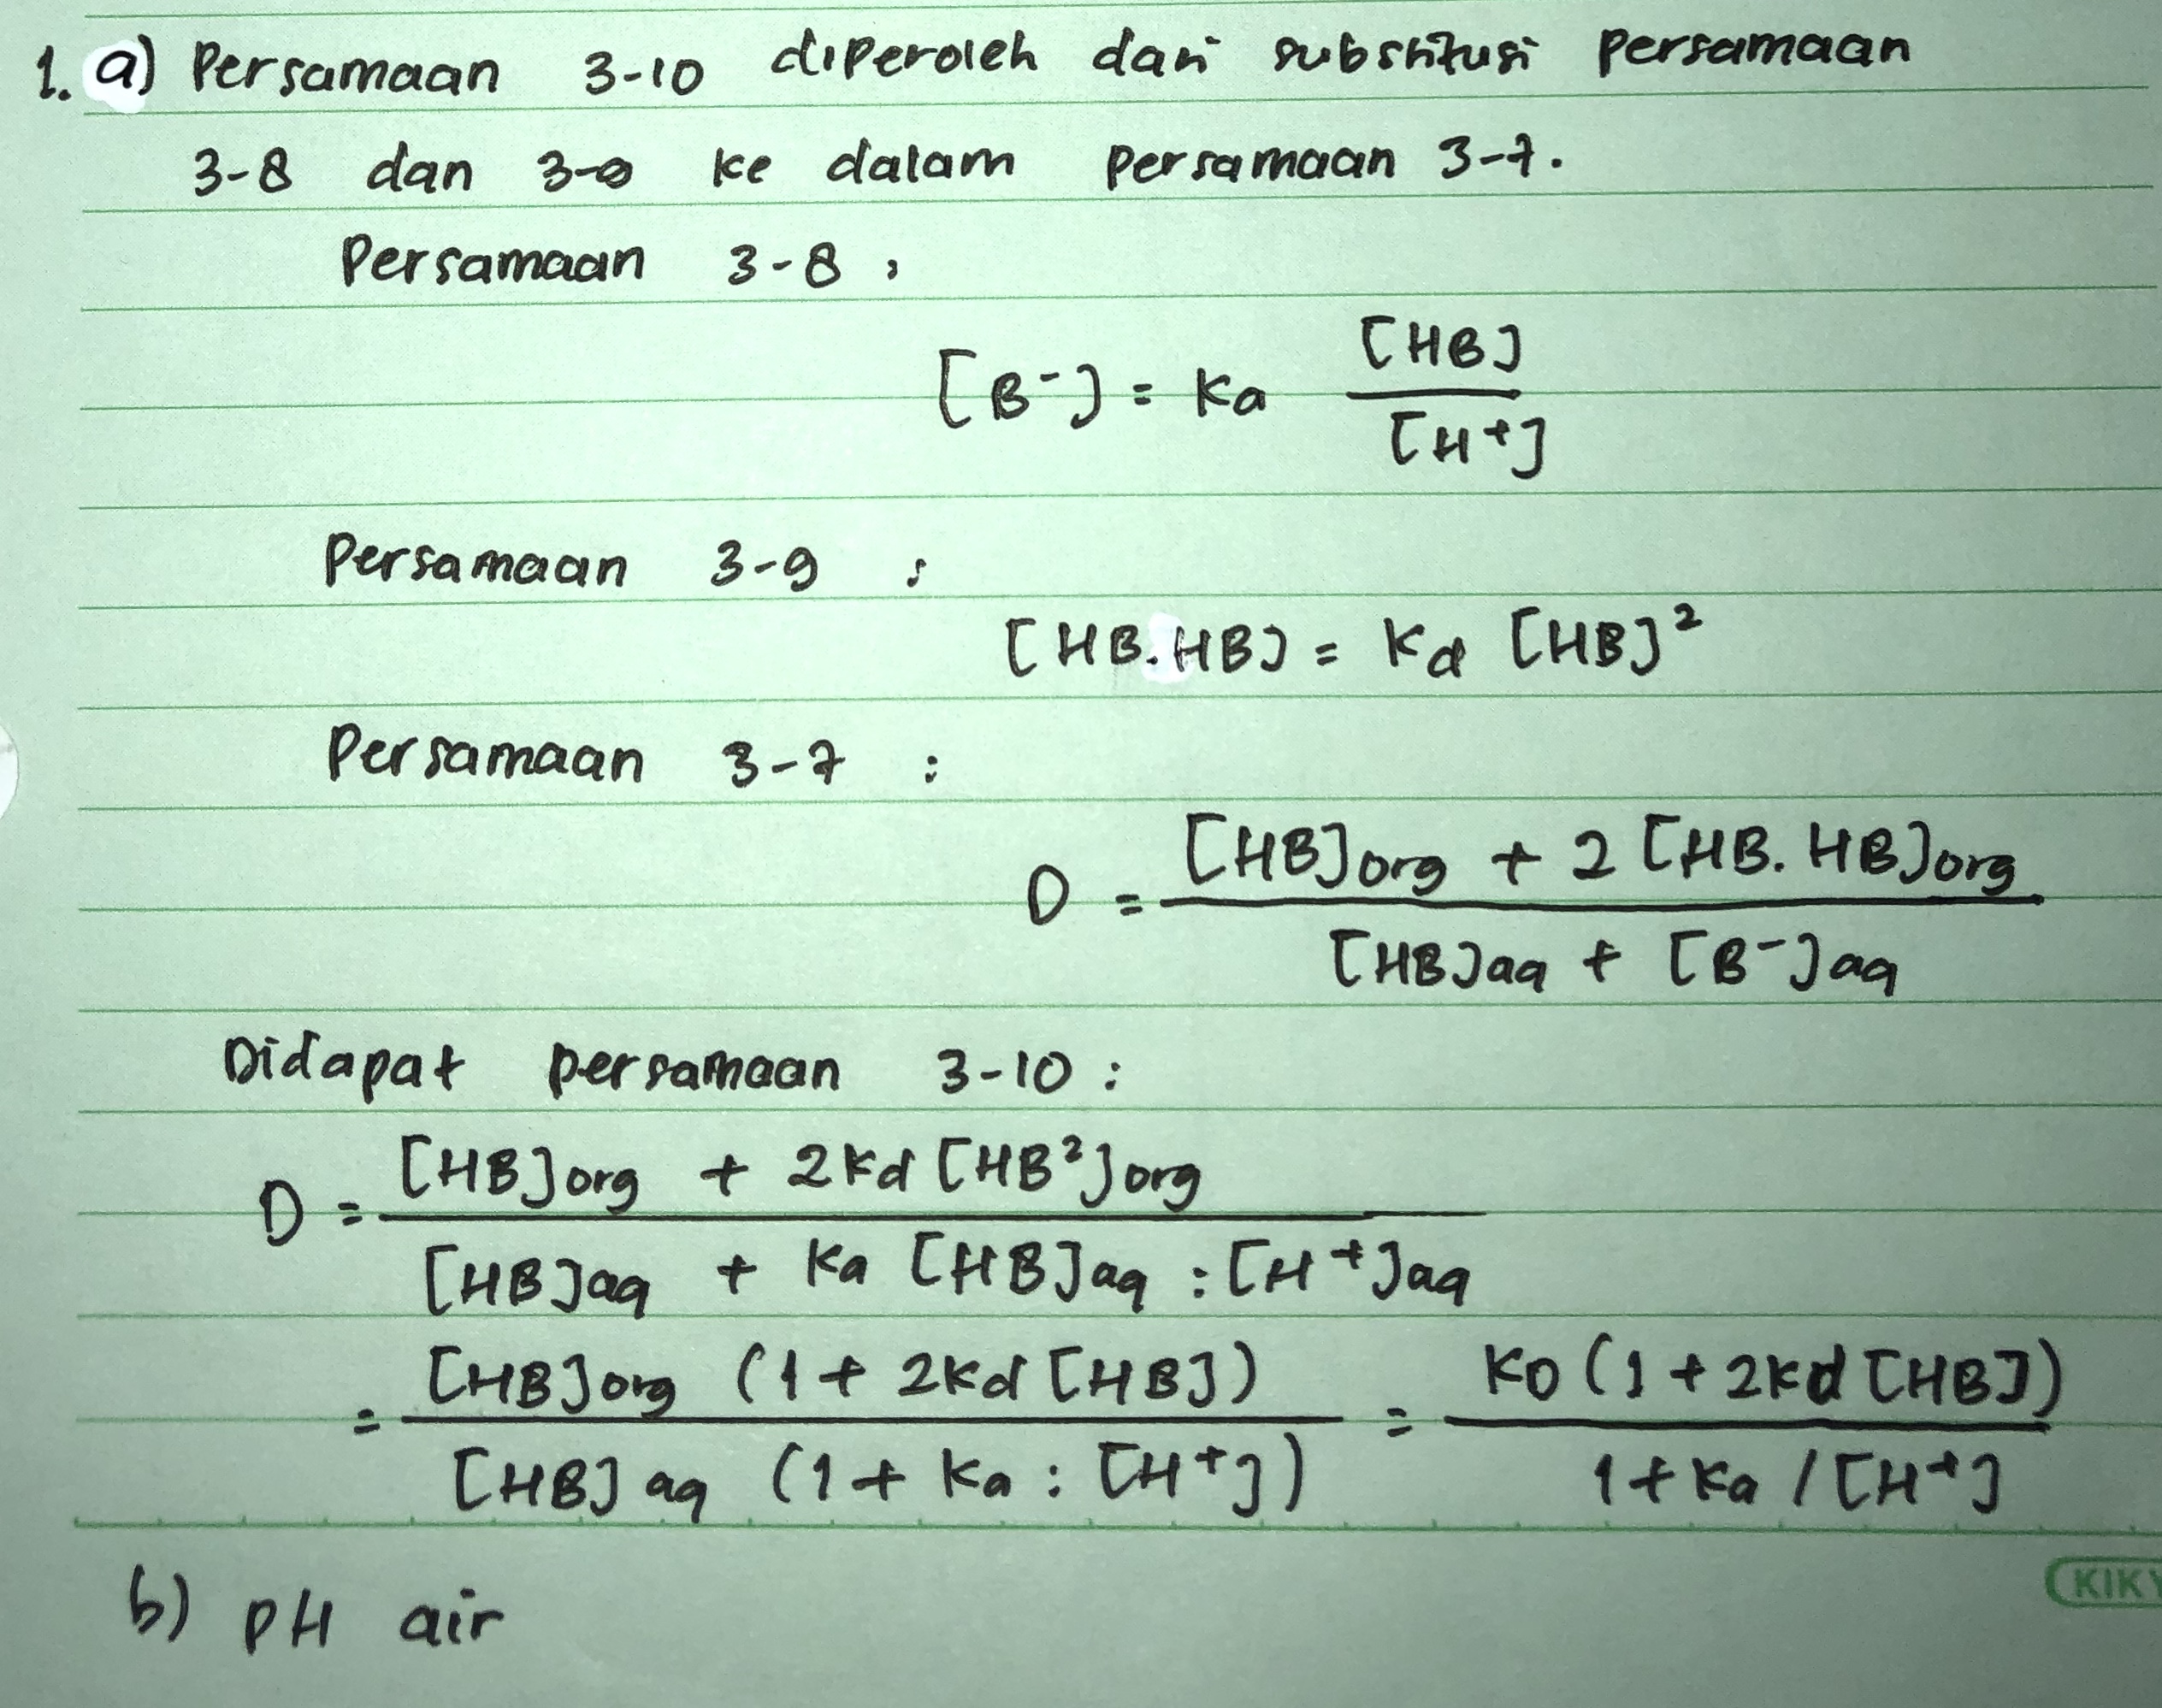 1. a) Persamaan 3-10 diperoleh dari substitusi persamaan
3-8 dan 3-9 ke dalam persamaan 3-7.
Persamaan 3-8 :
[B⁻] = Ka [HB] / [H⁺]
Persamaan 3-9 :
[HB.HB] = Kd [HB]²
Persamaan 3-7 :
D = [HB]org + 2 [HB.HB]org / [HB]aq + [B⁻]aq
Didapat persamaan 3-10 :
D = [HB]org + 2Kd [HB²]org / [HB]aq + Ka [HB]aq : [H⁺]aq
= [HB]org (1 + 2Kd [HB]) / [HB]aq (1 + Ka : [H⁺]) = KD (1 + 2Kd [HB]) / 1 + Ka / [H⁺]
b) pH air